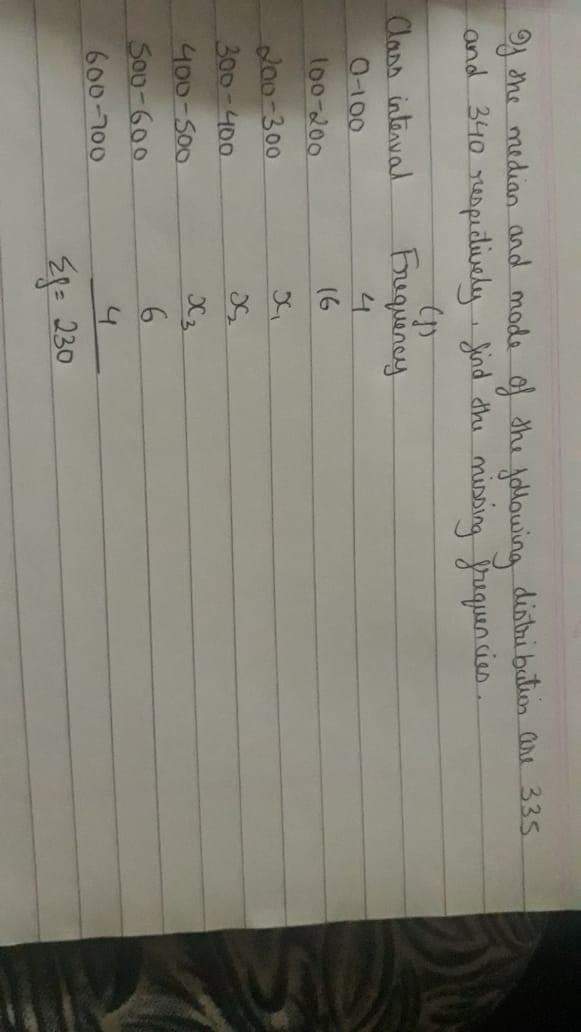 If the median and mode of the following distribution are 335
and 340 respectively, find the missing frequencies.
(f)
Class interval Frequency
0-100 4
100-200 16
200-300 x₁
300-400 x₂
400-500 x₃
500-600 6
600-700 4
Σf = 230